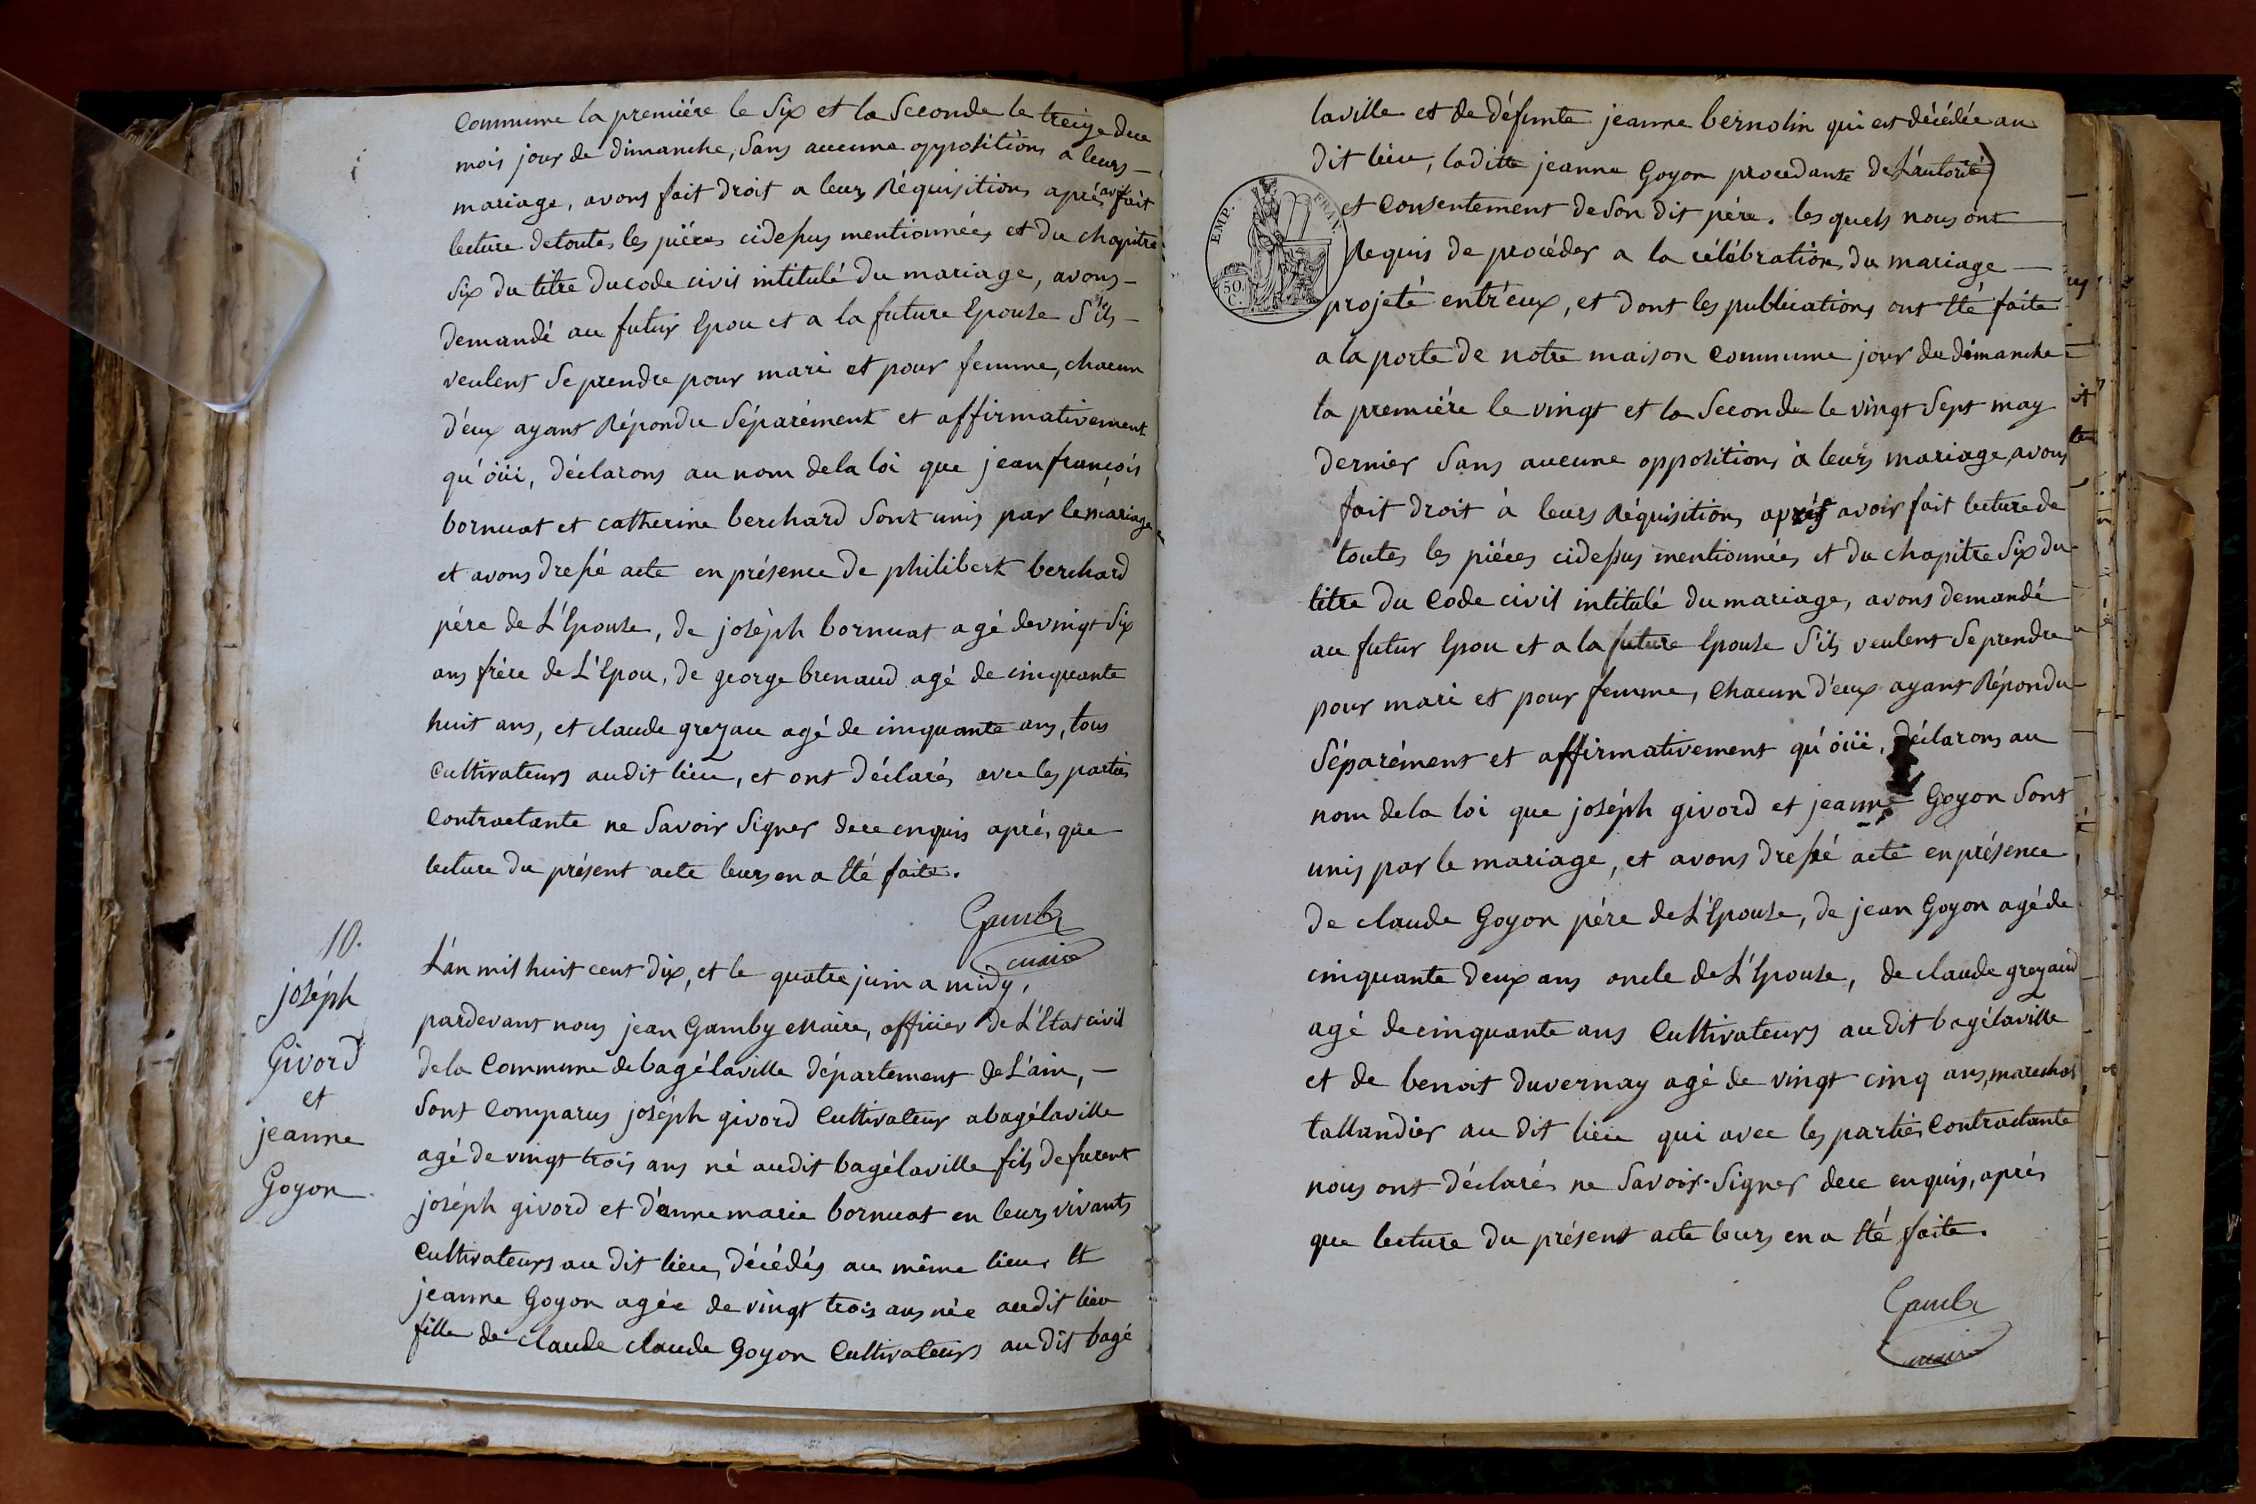 Commune la premiére le Six et la Seconde le treize dece
mois jour de dimanche, Sans aucune oppositions a leurs
mariage, avons fait droit a leurs Réquisitions aprés avoir fait
lecture de toutes les piéces cidessus mentionnées et du chapitre
Six du titre du code civil intitulé du mariage, avons
demandé au futur Epou et a la future Epouse S'ils
veulent Se prendre pour mari et pour femme, chacun
d'eux ayant Répondu Séparément et affirmativement
qu'öüi, déclarons au nom de la loi que jean françois
bornuat et catherine berchard Sont unis par le mariage
et avons dressé acte en présence de philibert berchard
pére de L'Epouse, de joséph bornuat agé de vingt Six
ans frére de L'Epou, de george brenaud agé de cinquante
huit ans, et claude grezau agé de cinquante ans, tous
Cultivateurs audit lieu, et ont déclarés avec les parties
Contractante ne Savoir Signer dece enquis aprés que
lecture du présent acte leurs en a Eté faite.
Gamby
maire
10.
joséph
Givord
et
jeanne
Goyon
L'an mil huit cent dix, et le quatre juin a midy,
pardevant nous jean Gamby Maire, officier de L'Etat civil
de la Commune de bagélaville département de L'ain,
Sont Comparus joséph givord Cultivateur a bagélaville
agé de vingt trois ans né audit bagélaville fils de furent
joséph givord et d'anne marie bornuat en leurs vivants
Cultivateurs au dit lieu, décédés au même lieu, Et
jeanne Goyon agée de vingt trois ans née audit lieu
fille de claude claude Goyon Cultivateurs au dit bagé
laville et de défunte jeanne bernolin qui est décédée au
dit lieu, la ditte jeanne Goyon procedante de L'autorité
et Consentement de Son dit pére. les quels nous ont
EMP. FRAN.
50 C.
Requis de procéder a la célébration du mariage
projeté entr'eux, et dont les publications ont Eté faite
a la porte de notre maison Commune jour du dimanche
la premiére le vingt et la Seconde le vingt Sept may
dernier Sans aucune oppositions à leurs mariage, avons
fait droit à leurs Réquisitions aprés avoir fait lecture de
toutes les piéces cidessus mentionnées et du chapitre Six du
titre du Code civil intitulé du mariage, avons demandé
au futur Epou et a la future Epouse S'ils veulent Se prendre
pour mari et pour femme, Chacun d'eux ayant Répondu
Séparément et affirmativement qu'öüi, déclarons au
nom de la loi que joséph givord et jeanne Goyon Sont
unis par le mariage, et avons dressé acte en présence
de claude Goyon pére de L'Epouse, de jean Goyon agé de
cinquante deux ans oncle de L'Epouse, de claude grezaud
agé de cinquante ans Cultivateurs au dit bagélaville
et de benoit duvernay agé de vingt cinq ans, marechal
tallandier au dit lieu qui avec les parties Contractante
nous ont déclarés ne Savoir Signer dece enquis, aprés
que lecture du présent acte leurs en a Eté faite.
Gamby
maire